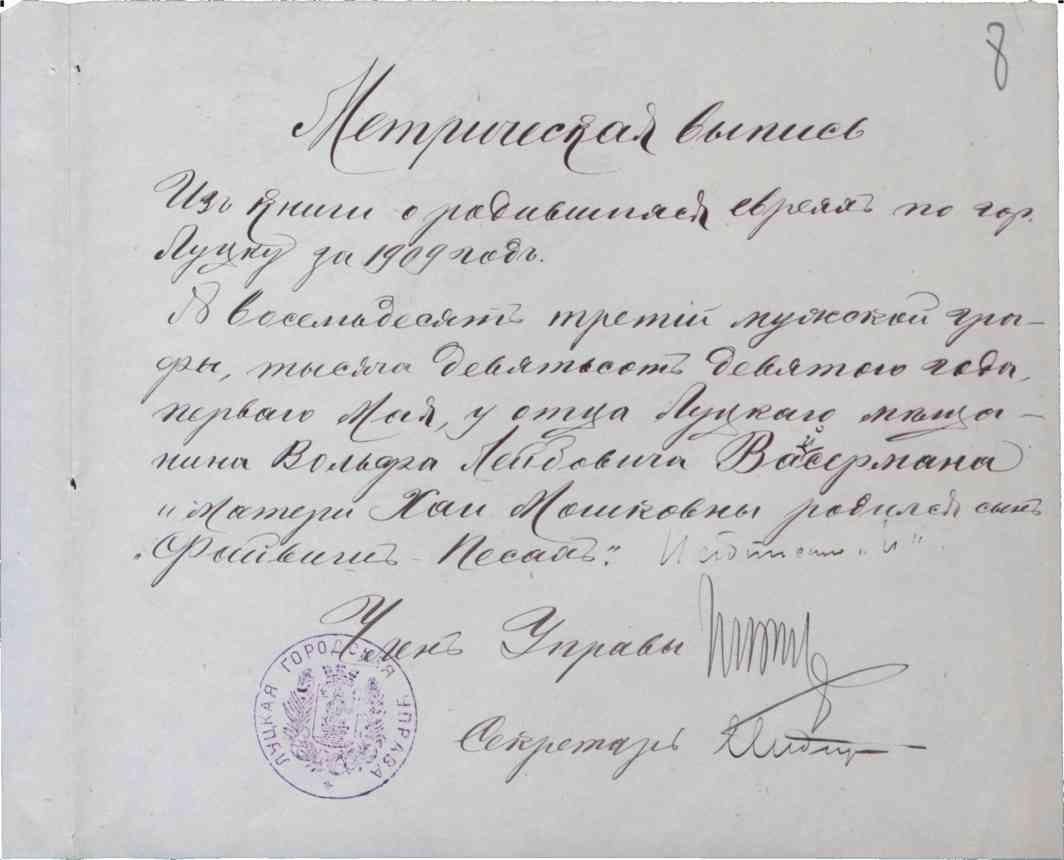 8
Метрическая выпись
Изъ книги о родившихся евреяхъ по гор.
Луцку за 1909 годъ.
В восемьдесятъ третій мужской гра-
фы, тысяча девятьсотъ девятого года,
перваго Мая, у отца Луцкаго мѣща-
нина Вольфа Лейбовича Вайсермана
и матери Хаи Мошковны родился сынъ
„Файвишъ-Песахъ“.
Членъ Управы
Секретарь
ЛУЦКАЯ ГОРОДСКАЯ УПРАВА